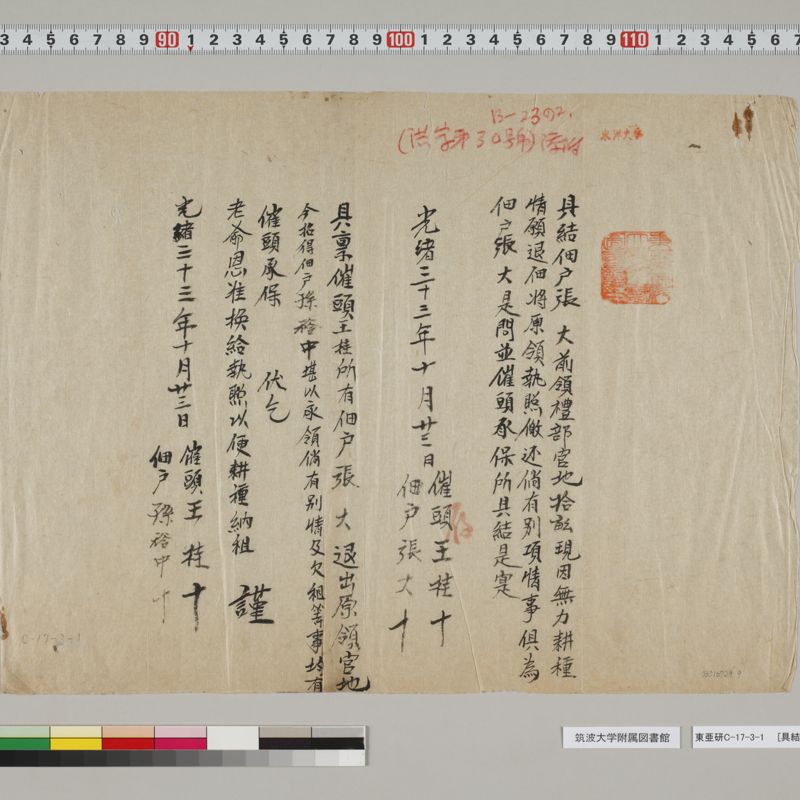 B-2392.
(洪字第30號)添付
具結佃戶張 大前領禮部官地拾畝現因無力耕種
情願退佃將原領執照繳还倘有别項情事俱為
佃戶張 大是問並催頭承保所具結是寔
光緒三十三年十月廿三日
催頭王桂十
佃戶張大十
具禀催頭王桂所有佃戶張 大退出原領官地
今招得佃戶孫裕中堪以承領倘有别情及欠租等事均有
催頭承保 伏乞
老爺恩准换給執照以便耕種納租 謹
光緒三十三年十月廿三日
催頭王 桂十
佃戶孫裕中十
C-17-3-1
筑波大学附属図書館
東亜研C-17-3-1 [具結
3 4 5 6 7 8 9 90 1 2 3 4 5 6 7 8 9 100 1 2 3 4 5 6 7 8 9 110 1 2 3 4 5 6 7